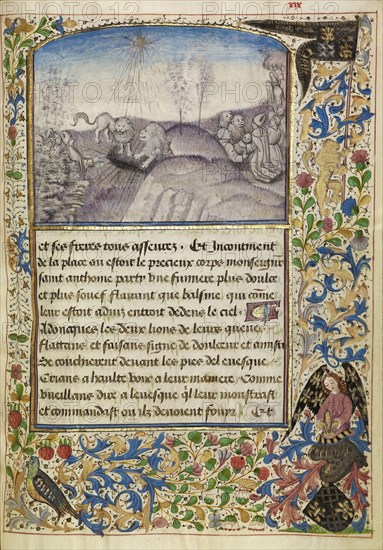 xix
et ses freres tous asseurez. Et Incontinent
de la place ou estoit le precieux corps monseigneur
saint anthoine party une fumiere plus doulce
et plus souef flairant que balsme, qui come
leur estoit aduiz entroit dedens le ciel
Adoncques les deux lions de leurs queues
flattans et faisans signe de doulceur et amistie
Se coucherent deuant les piez del euesque
Crians a haulte voix a leur maniere, Comme
vueillans dire a leuesque qil leur monstrast
et commandast ou ilz deuoient fouyr Et